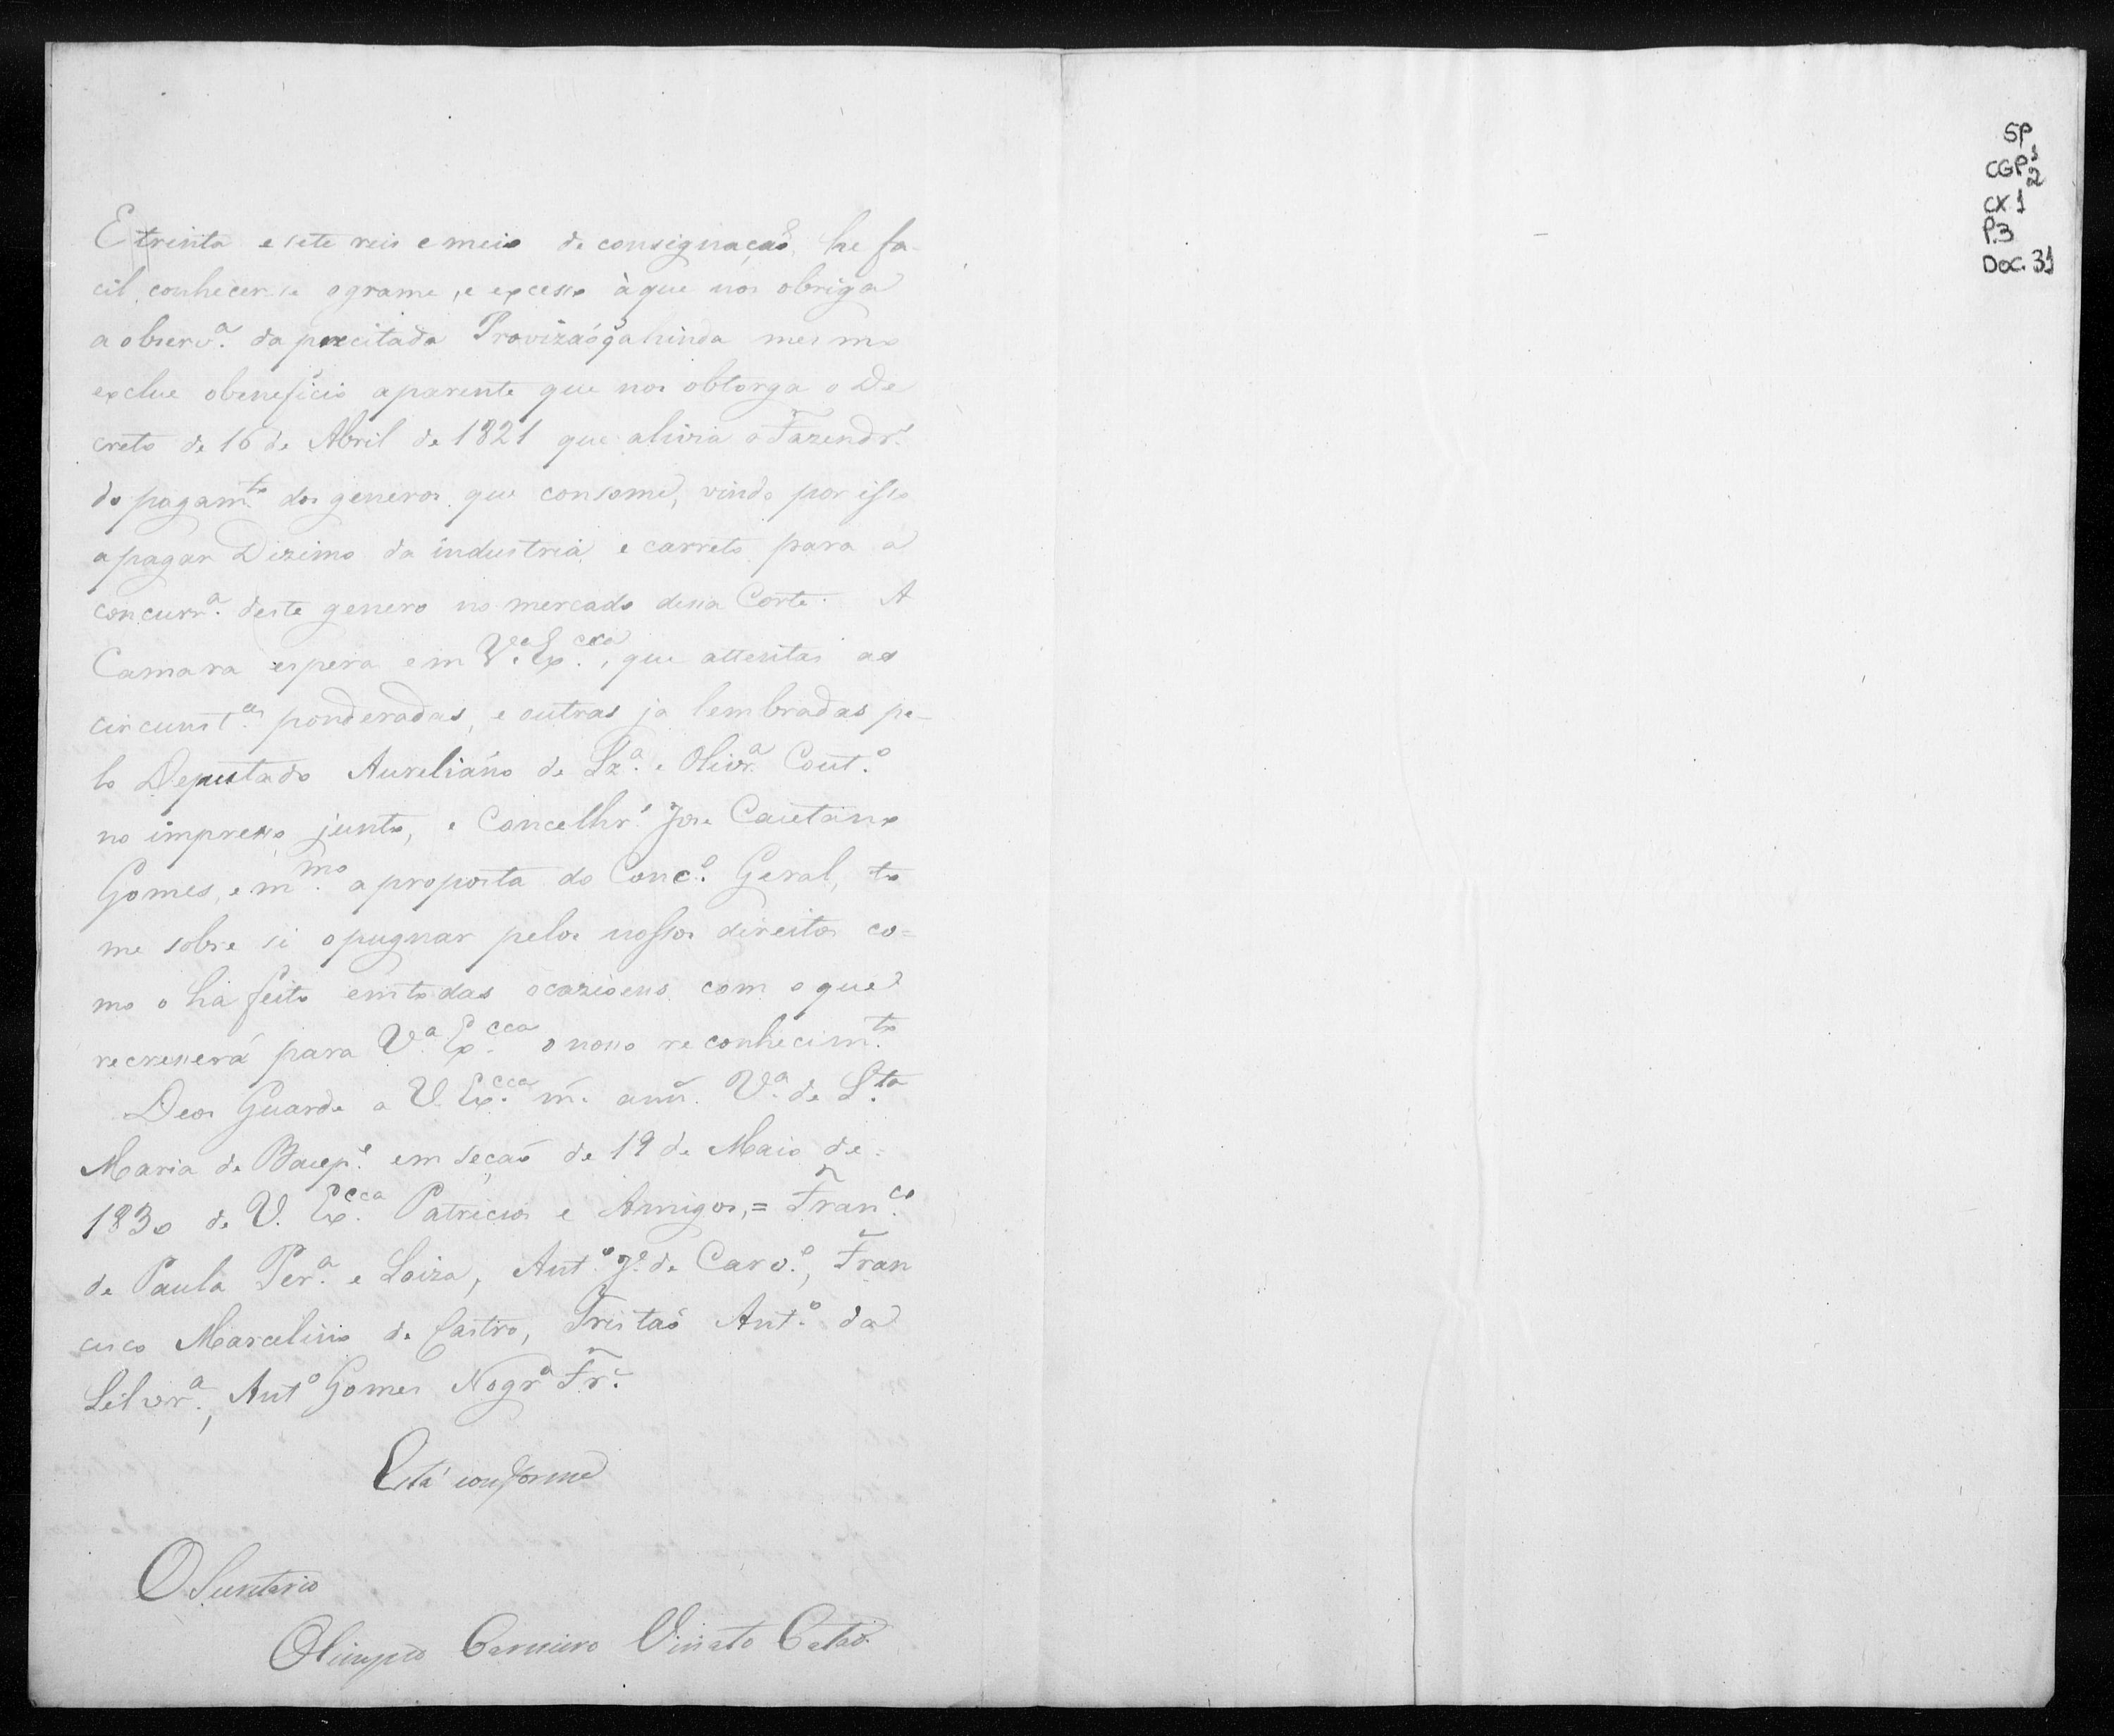 E trinta e sete reis e meio de consignaçaõ, he fa-
cil conhecer-se ograme, e excesso àque nos obriga
a observ.ª da precitada Provizaõ q̃ ahinda mesmo
exclue obeneficio aparente que nos obtorga o De
creto de 16 de Abril de 1821 que alivia o Fazendr.º
do pagam.to dos generos que consome, vindo por isso
apagar Dizimo da industria, e carreto para a
concurr.ª deste genero no mercado dessa Corte. A
Camara espera em V.ª Ex.cca, que attentas as
circunst.as ponderadas, e outras ja lembradas pe-
lo Deputado Aureliano de Sz.ª e Olivr.ª Cout.º
no impresso junto, e Concelhr.º Jose Caietano
Gomes, e m.mo a proposta do Conc.º Geral, to
me sobre si opugnar pelos nossos direitos co=
mo o há feito emtodas ocazioens com oque
recrescerá para V.ª Ex.cca o nosso reconhecim.to
Deos Guarde a V. Ex.cca m.s ann.s V.ª de S.ta
Maria de Baep.e em seçaõ de 19 de Maio de=
1830 de V. Ex.cca Patricios e Amigos,= Fran.co
de Paula Per.ª e Loiza, Ant.º J.e de Carv.º, Fran
cisco Marcelino de Castro, Tristaõ Ant.º da
Silvr.ª, Ant.º Gomes Nogr.ª Fr.e
Está conforme
O Secretario
Olimpio Carneiro Viriato Cataõ
SP
CGP 1
2
CX 1
P.3
Doc. 31